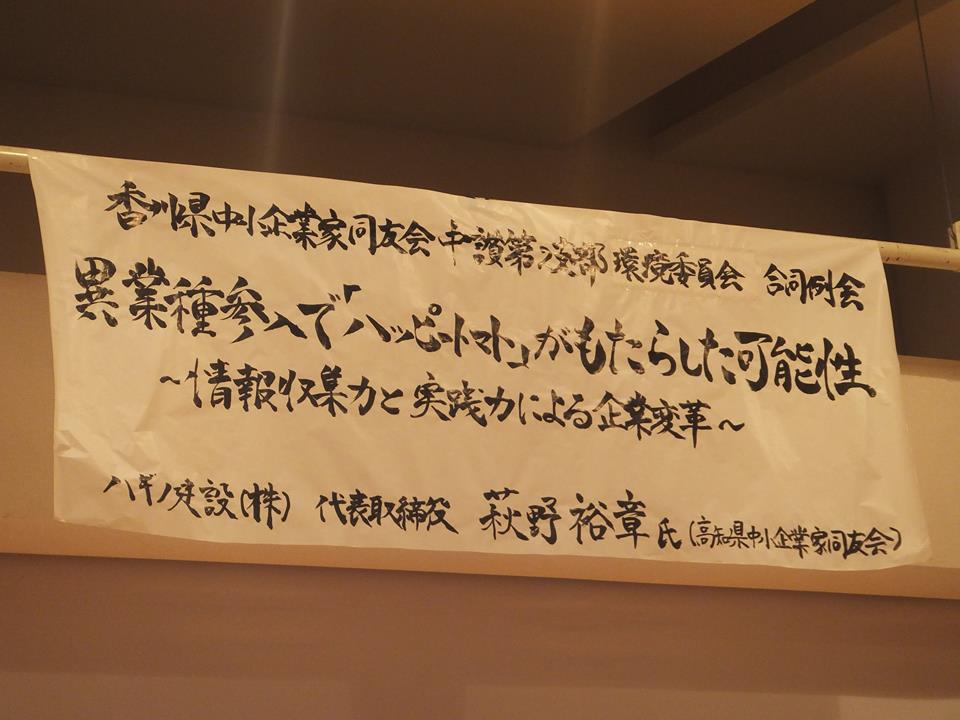 香川県中小企業家同友会 中讃第2支部 環境委員会 合同例会
異業種参入で「ハッピートマト」がもたらした可能性
～情報収集力と実践力による企業変革～
ハギノ建設(株) 代表取締役 萩野裕章氏(高知県中小企業家同友会)